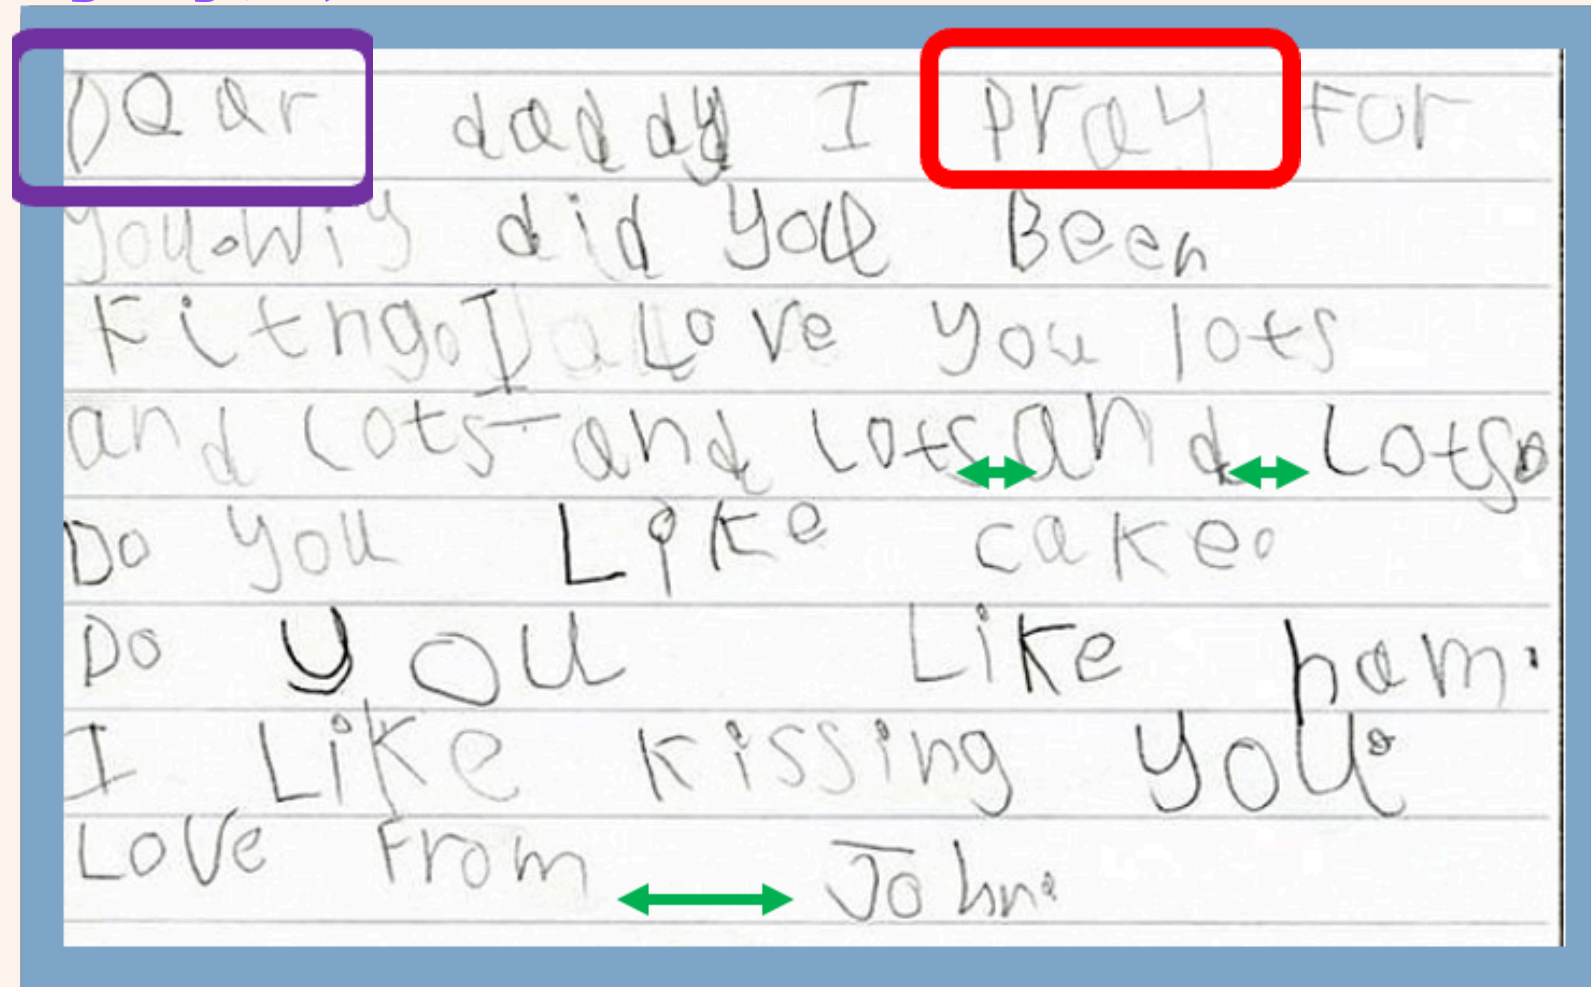 Dear daddy I pray For
you.Wiy did you Been
Fitng.I Love you lots
and Lots and Lots and Lots.
Do you Like cake.
Do you Like ham.
I Like kissing you.
Love From John.